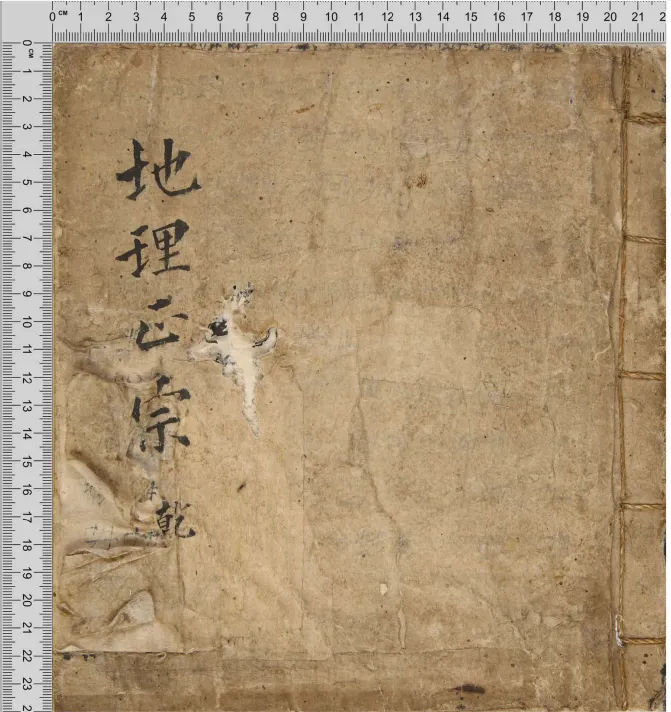 地理正宗 乾
0 CM 1 2 3 4 5 6 7 8 9 10 11 12 13 14 15 16 17 18 19 20 21 2
0 CM 1 2 3 4 5 6 7 8 9 10 11 12 13 14 15 16 17 18 19 20 21 22 23 2